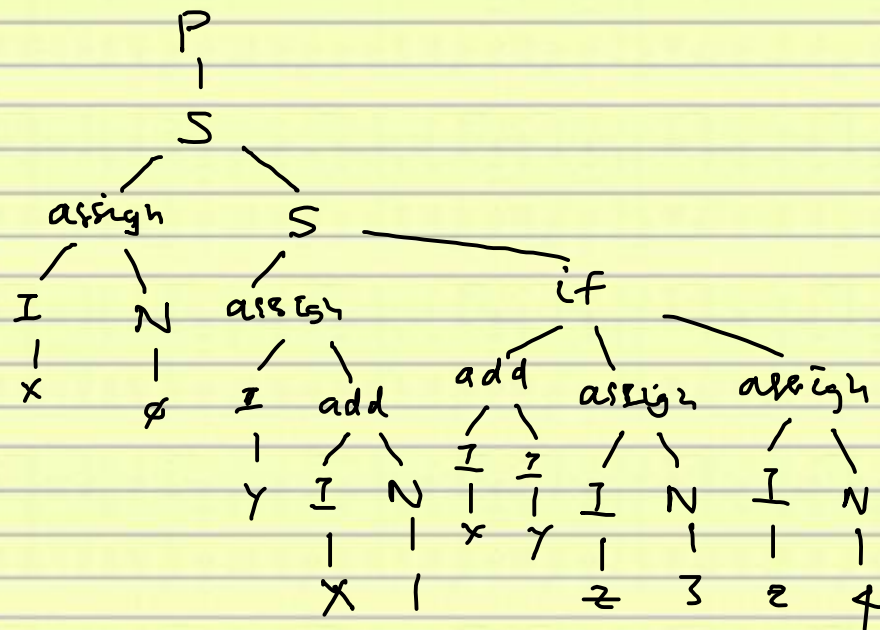 P
S
assign S
I N assign if
x ø I add add assign assign
Y I N I I I N I N
X 1 x y z 3 z 4